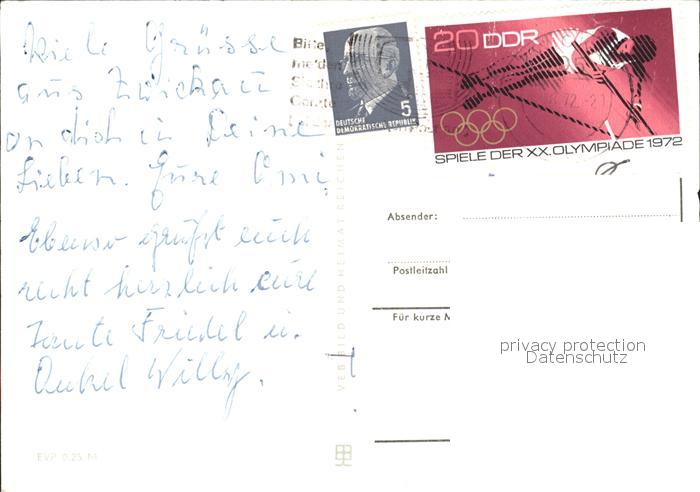 Viele Grüsse
aus Zwickau
an dich u. Deine
Lieben. Eure Omi
Ebenso grüßt euch
recht herzlich eure
Tante Friedel u.
Onkel Willy.
EVP 0,25 M
VEB BILD UND HEIMAT REICHENBACH
5
DEUTSCHE
DEMOKRATISCHE REPUBLIK
20 DDR
SPIELE DER XX. OLYMPIADE 1972
Absender:
Postleitzahl
Für kurze M
privacy protection
Datenschutz